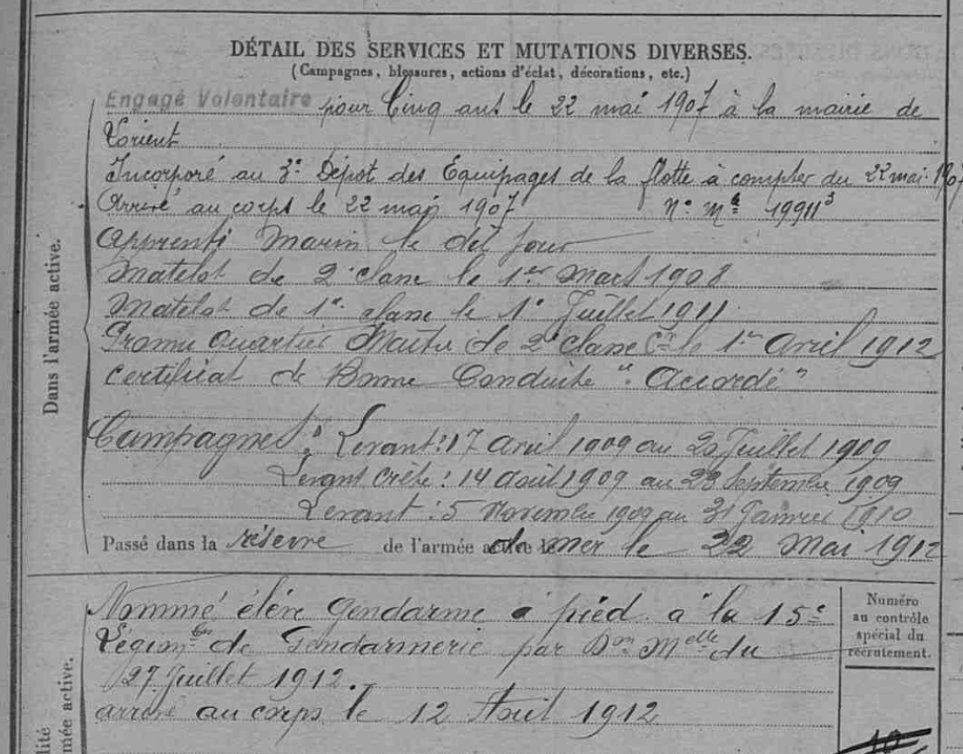 DÉTAIL DES SERVICES ET MUTATIONS DIVERSES.
(Campagnes, blessures, actions d'éclat, décorations, etc.)
Engagé Volontaire pour Cinq ans le 22 mai 1907 à la mairie de
Lorient
Incorporé au 3e Dépôt des Équipages de la flotte à compter du 22 mai 1907
Arrivé au corps le 22 mai 1907 No Mle 19911 3
Apprenti Marin le dit jour
Matelot de 2e classe le 1er Mars 1908
Matelot de 1e classe le 1e Juillet 1911
Promu Quartier Maitre de 2e classe le 1er Avril 1912
Certificat de Bonne Conduite "Accordé"
Campagnes : Levant : 17 Avril 1909 au 20 Juillet 1909
Levant Crète : 14 août 1909 au 28 Septembre 1909
Levant : 5 Novembre 1909 au 31 Janvier 1910
Passé dans la réserve de l'armée active le de mer le 22 Mai 1912
Dans l'armée active.
Nommé élève Gendarme à pied à la 15e
Légion de Gendarmerie par Don Melle du
27 Juillet 1912.
arrivé au corps le 12 Août 1912
Numéro
au contrôle
spécial du
recrutement.
lité
mée active.